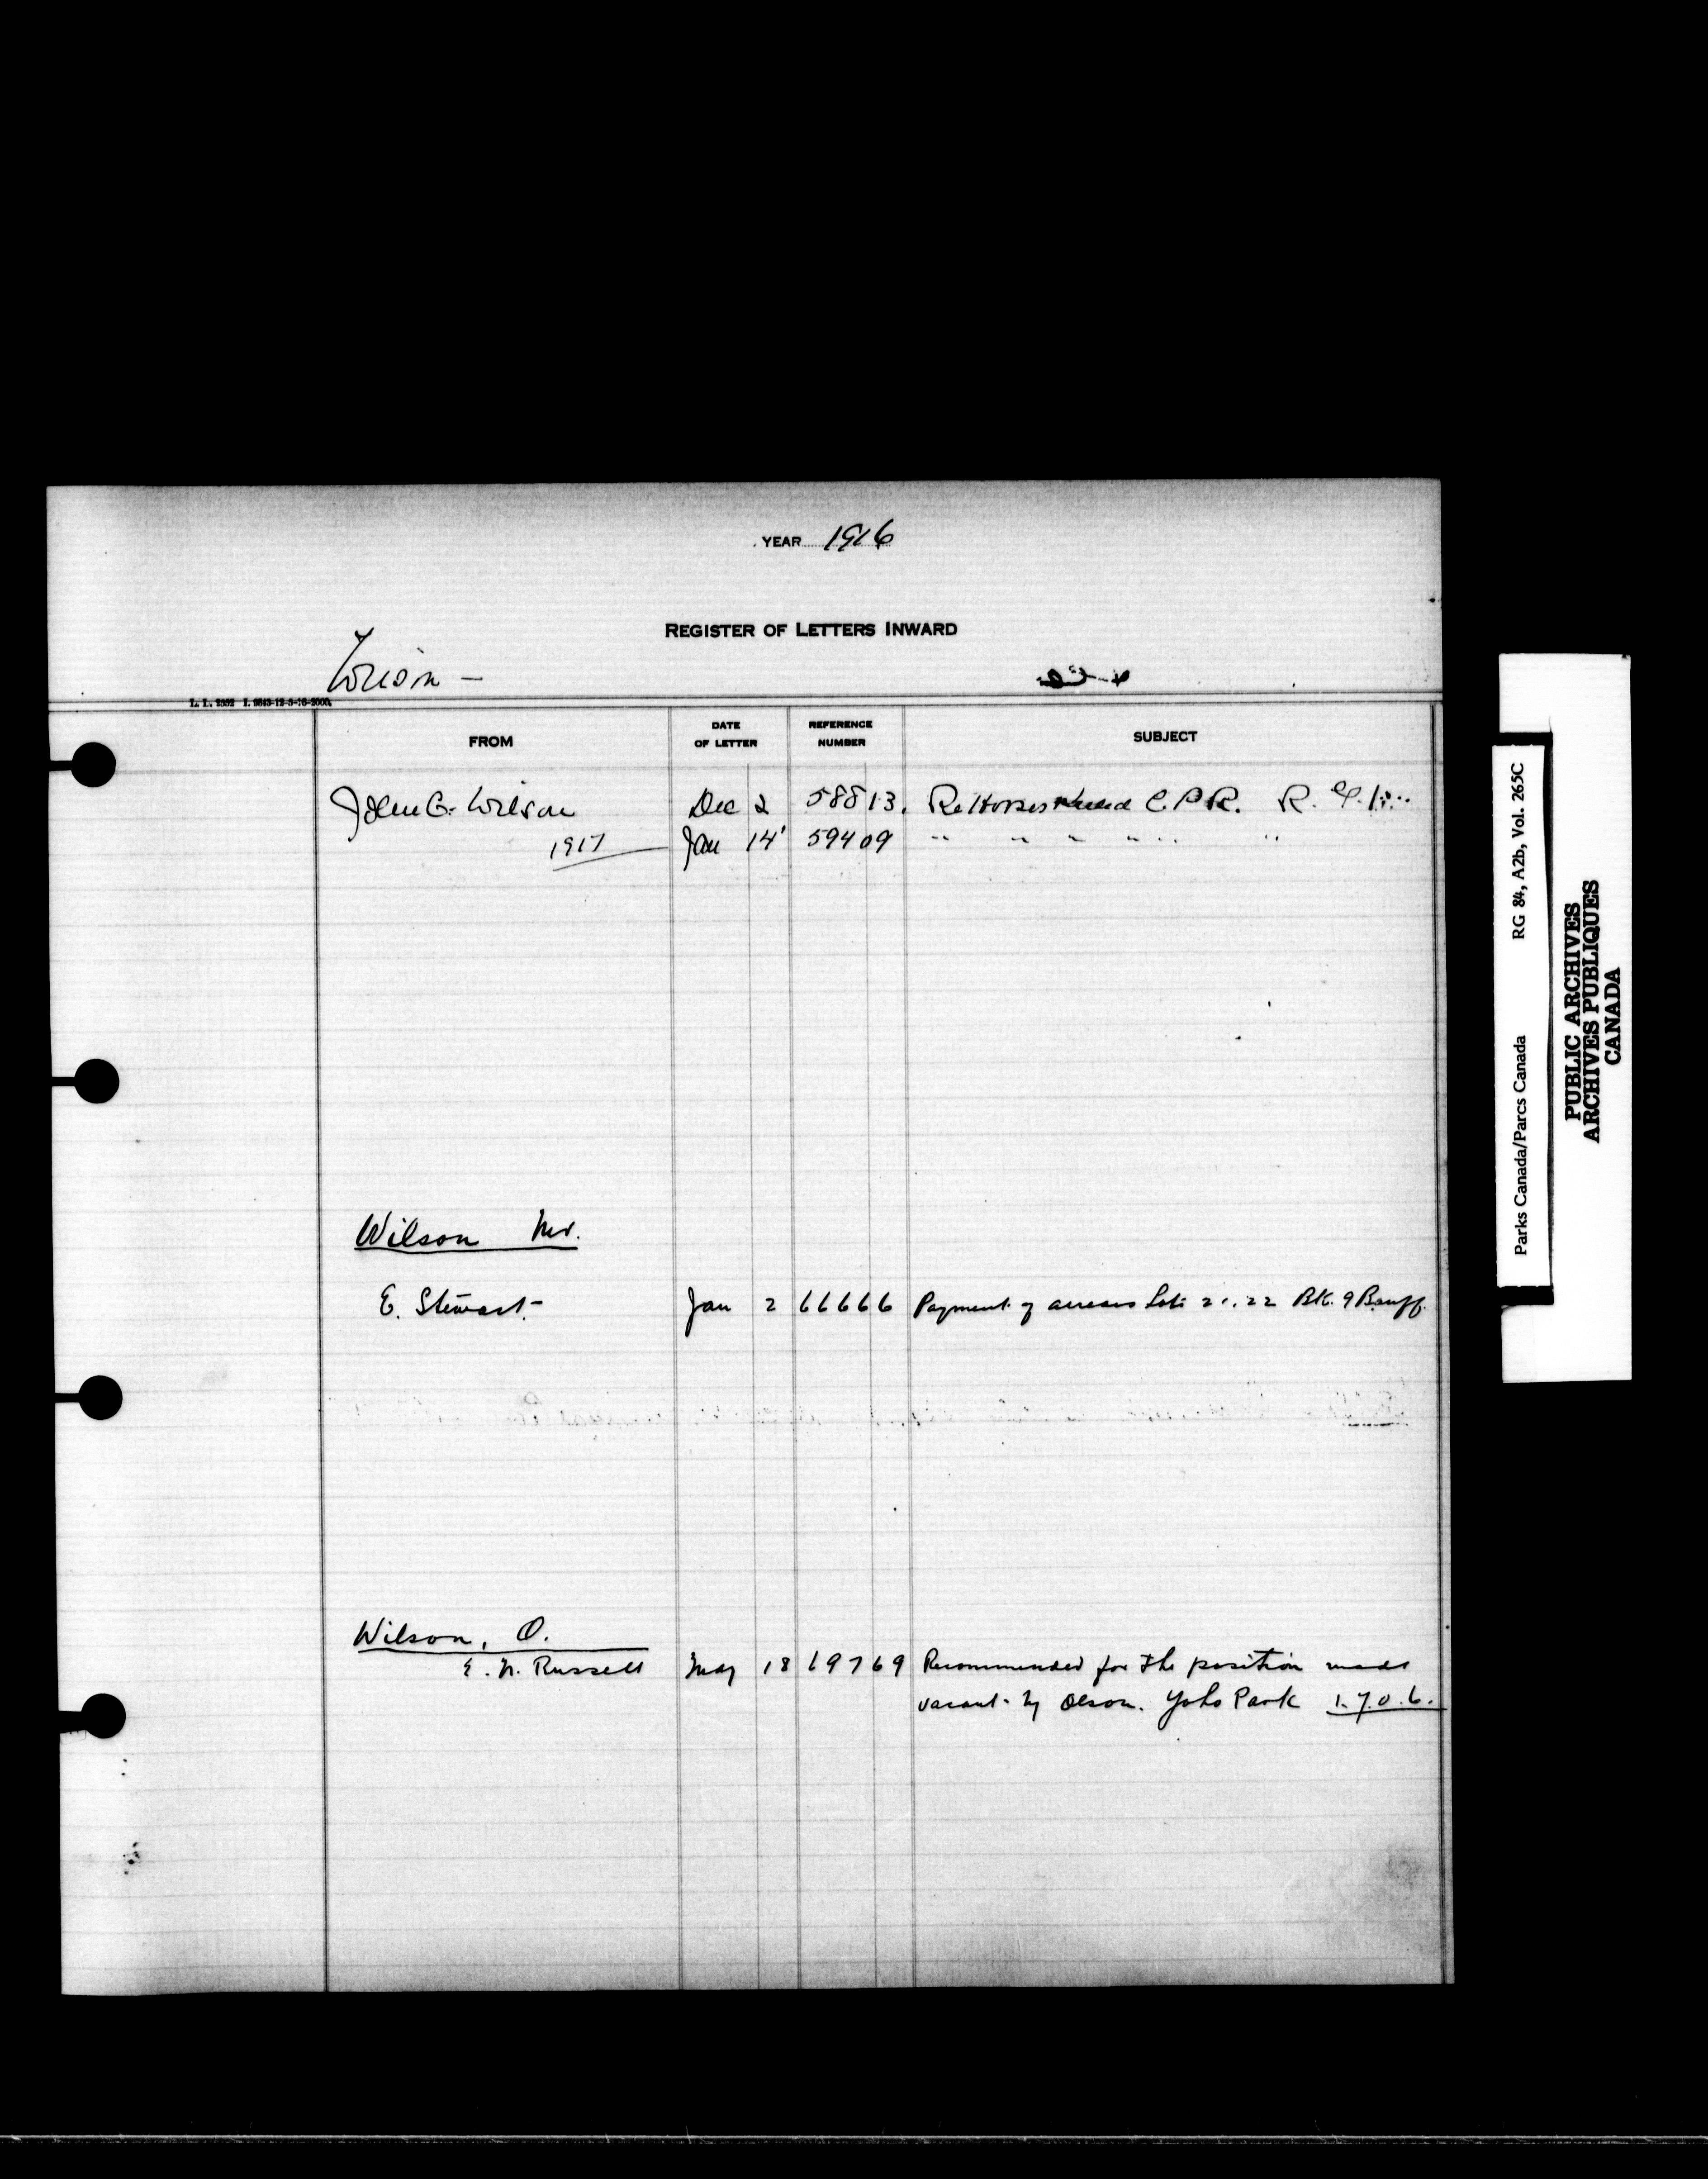 YEAR 1916
REGISTER OF LETTERS INWARD
Wilson -
L. L. 2552 I. 9843-12-5-16-2000.
FROM DATE OF LETTER REFERENCE NUMBER SUBJECT
John C. Wilson Dec 2 58813. Re Horses C.P.R. R.
1917 Jan 14 59409 " " " " "
Wilson Mr.
E. Stewart- Jan 2 66666 Payment of arrears Lots 21.22 Blk. 9 Banff.
Wilson, O.
E. N. Russell May 18 69769 Recommended for the position made
vacant by Olson. Yoho Park
Parks Canada/Parcs Canada RG 84, A2b, Vol. 265C
PUBLIC ARCHIVES
ARCHIVES PUBLIQUES
CANADA